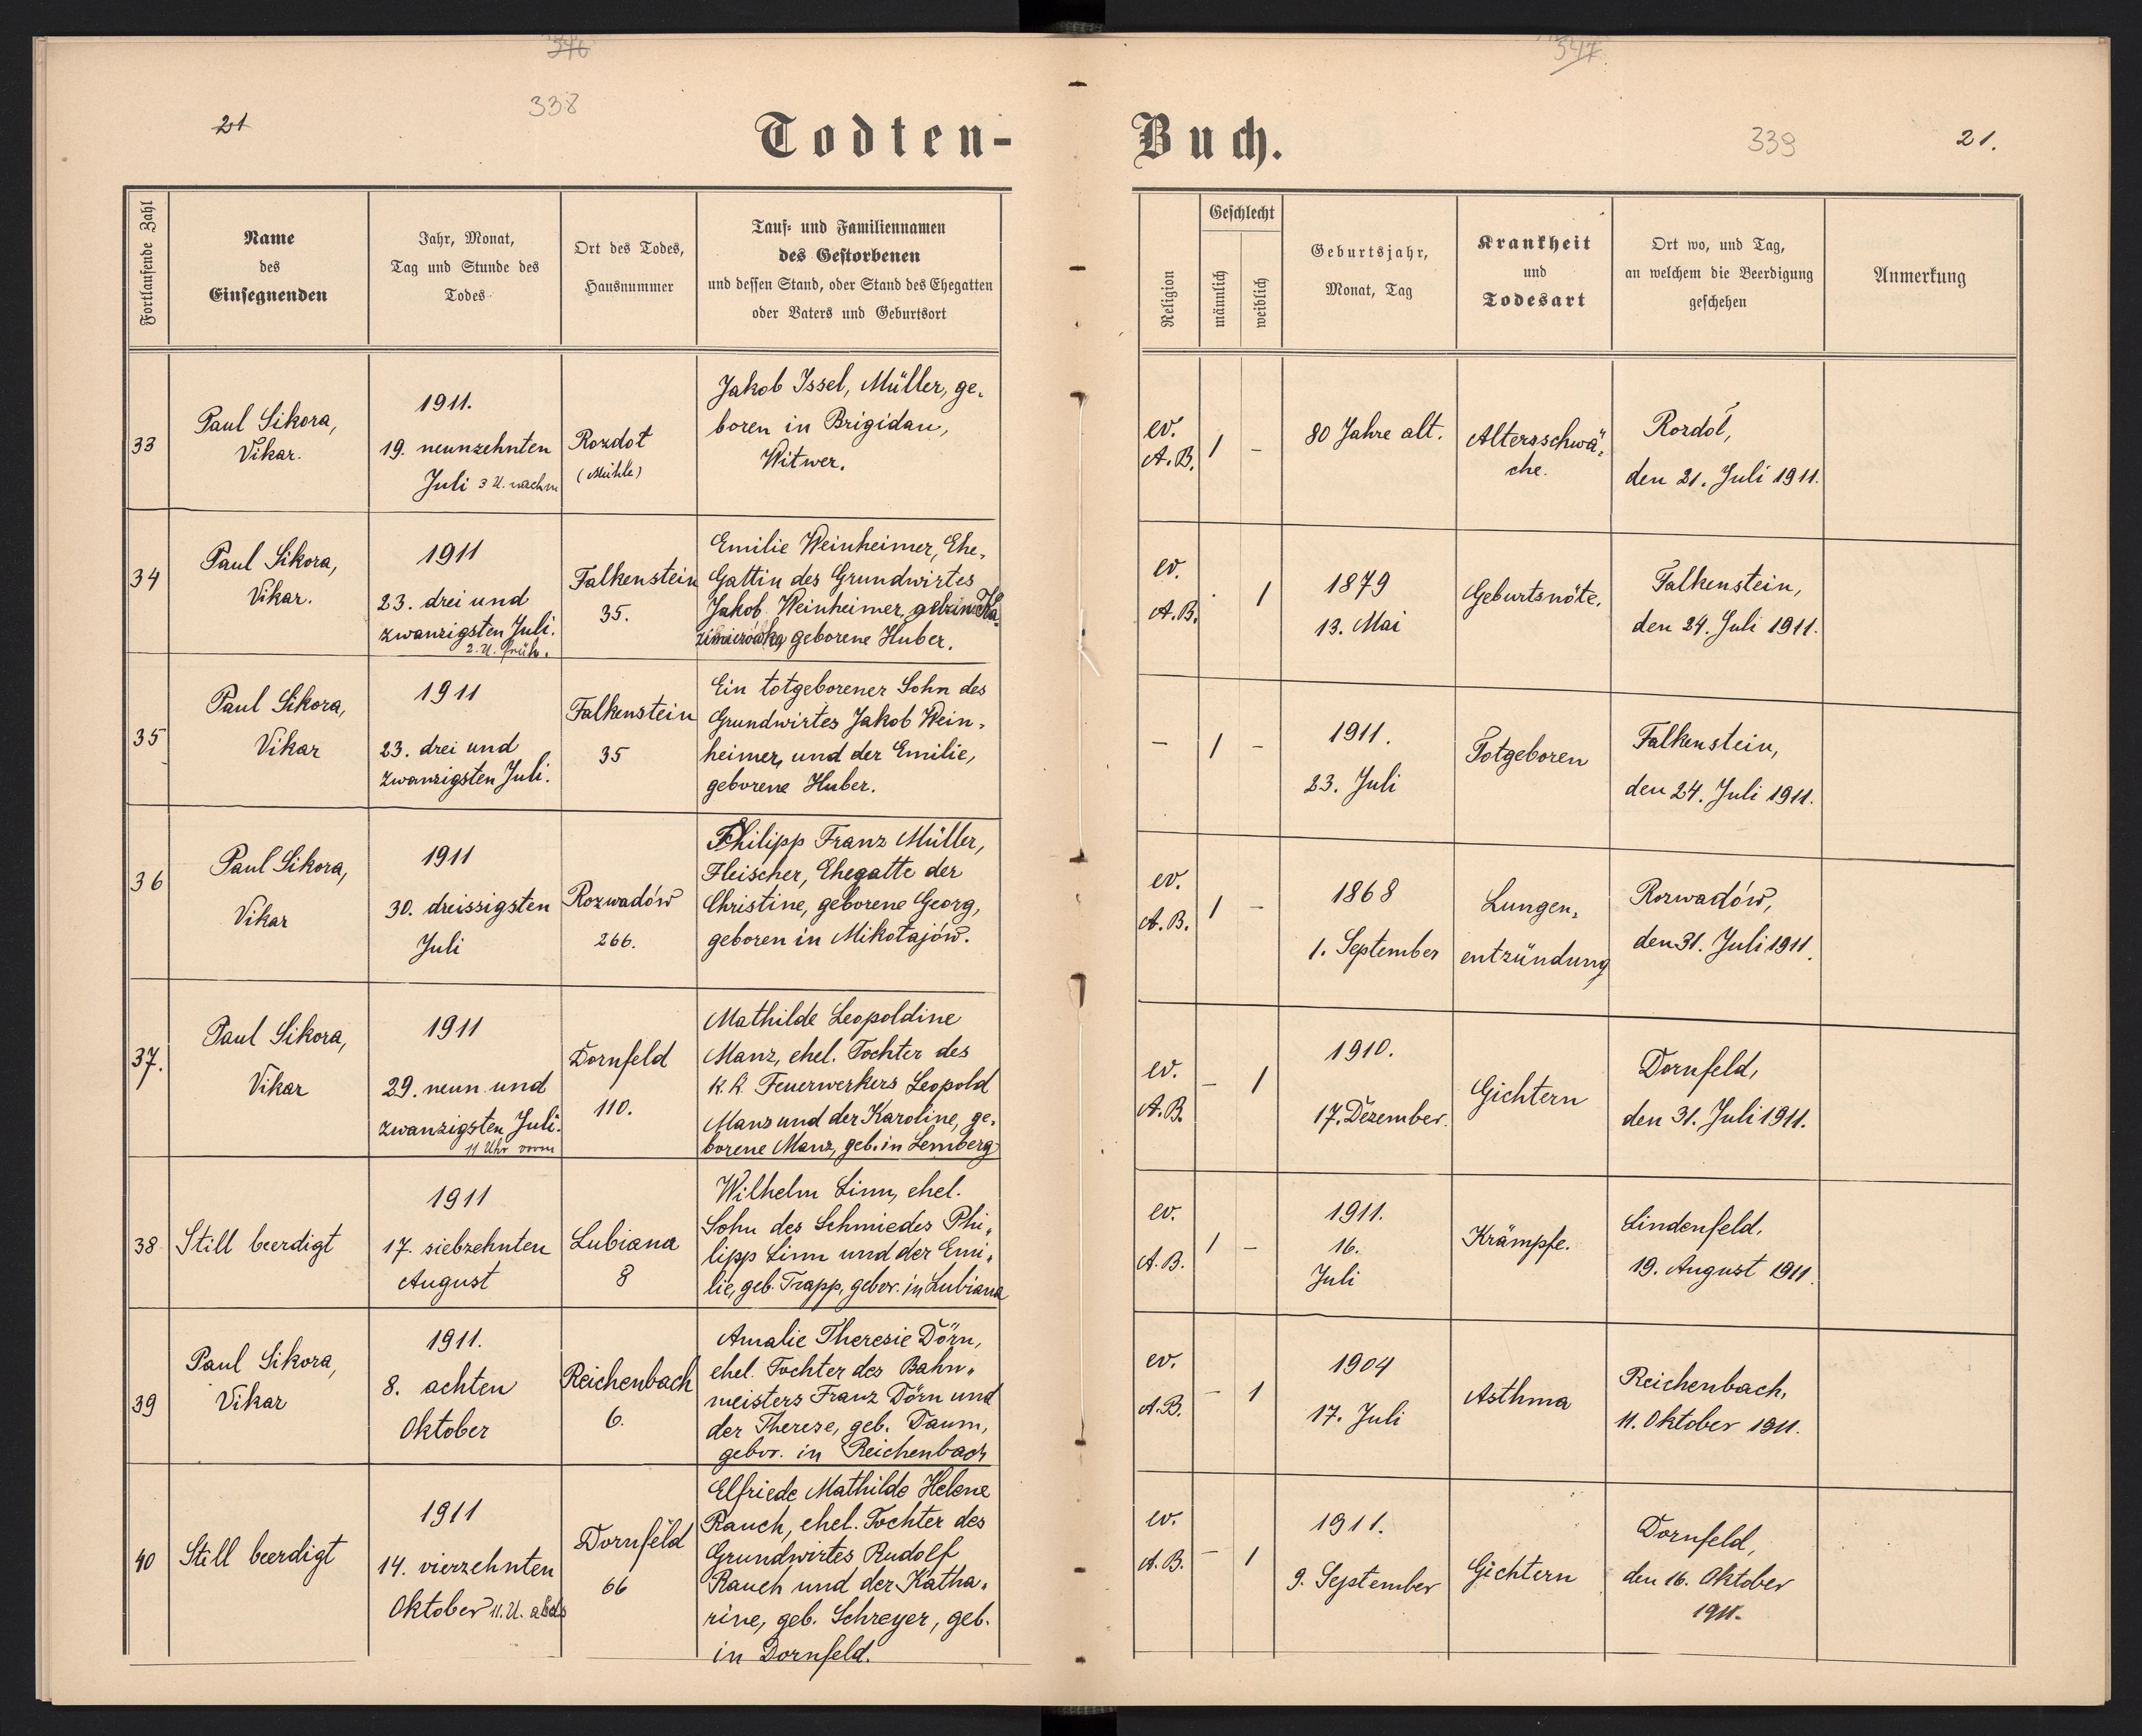 376
347
338
21
Todten-
Buch.
339
21.
Fortlaufende Zahl
Name
des
Einsegnenden
Jahr, Monat,
Tag und Stunde des
Todes
Ort des Todes,
Hausnummer
Tauf- und Familiennamen
des Gestorbenen
und dessen Stand, oder Stand des Ehegatten
oder Vaters und Geburtsort
Religion
Geschlecht
männlich
weiblich
Geburtsjahr,
Monat, Tag
Krankheit
und
Todesart
Ort wo, und Tag,
an welchem die Beerdigung
geschehen
Anmerkung
33
Paul Sikora,
Vikar.
1911.
19. neunzehnten
Juli 3 U. nachm
Rozdoł
(Mühle)
Jakob Issel, Müller, ge-
boren in Brigidau,
Witwer.
ev.
A.B.
1
-
80 Jahre alt.
Altersschwä-
che.
Rozdół,
den 21. Juli 1911.
34
Paul Sikora,
Vikar.
1911
23. drei und
zwanzigsten Juli.
2. U. früh.
Falkenstein
35.
Emilie Weinheimer, Ehe-
Gattin des Grundwirtes
Jakob Weinheimer, geb. in Ka-
zimierówka, geborene Huber.
ev.
A.B.
1
1879
13. Mai
Geburtsnöte.
Falkenstein,
den 24. Juli 1911.
35
Paul Sikora,
Vikar
1911
23. drei und
zwanzigsten Juli.
Falkenstein
35
Ein totgeborener Sohn des
Grundwirtes Jakob Wein-
heimer, und der Emilie,
geborene Huber.
-
1
-
1911.
23. Juli
Totgeboren
Falkenstein,
den 24. Juli 1911.
36
Paul Sikora,
Vikar
1911
30. dreissigsten
Juli
Rozwadów
266.
Philipp Franz Müller,
Fleischer, Ehegatte der
Christine, geborene Georg,
geboren in Mikołajów.
ev.
A.B.
1
-
1868
1. September
Lungen-
entzündung
Rozwadów,
den 31. Juli 1911.
37.
Paul Sikora,
Vikar
1911
29. neun und
zwanzigsten Juli.
11 Uhr vorm
Dornfeld
110.
Mathilde Leopoldine
Manz, ehel. Tochter des
k. k. Feuerwerkers Leopold
Manz und der Karoline, ge-
borene Manz, geb. in Lemberg
ev.
A.B.
-
1
1910.
17. Dezember.
Gichtern
Dornfeld,
den 31. Juli 1911.
38
Still beerdigt
1911
17. siebzehnten
August
Lubiana
8
Wilhelm Linn, ehel.
Sohn des Schmiedes Phi-
lipp Linn und der Emi-
lie, geb. Trapp, gebor. in Lubiana
ev.
A.B.
1
-
1911.
16.
Juli
Krämpfe.
Lindenfeld.
19. August 1911.
39
Paul Sikora,
Vikar
1911.
8. achten
Oktober
Reichenbach
6.
Amalie Theresie Dörn,
ehel. Tochter des Bahn-
meisters Franz Dörn und
der Therese, geb. Daum,
gebor. in Reichenbach
ev.
A.B.
-
1
1904
17. Juli
Asthma
Reichenbach,
11. Oktober 1911.
40
Still beerdigt
1911
14. vierzehnten
Oktober 11. U. abds
Dornfeld
66
Elfriede Mathilde Helene
Rauch, ehel. Tochter des
Grundwirtes Rudolf
Rauch und der Katha-
rine, geb. Schreyer, geb.
in Dornfeld.
ev.
A.B.
-
1
1911.
9. September
Gichtern
Dornfeld,
den 16. Oktober
1911.